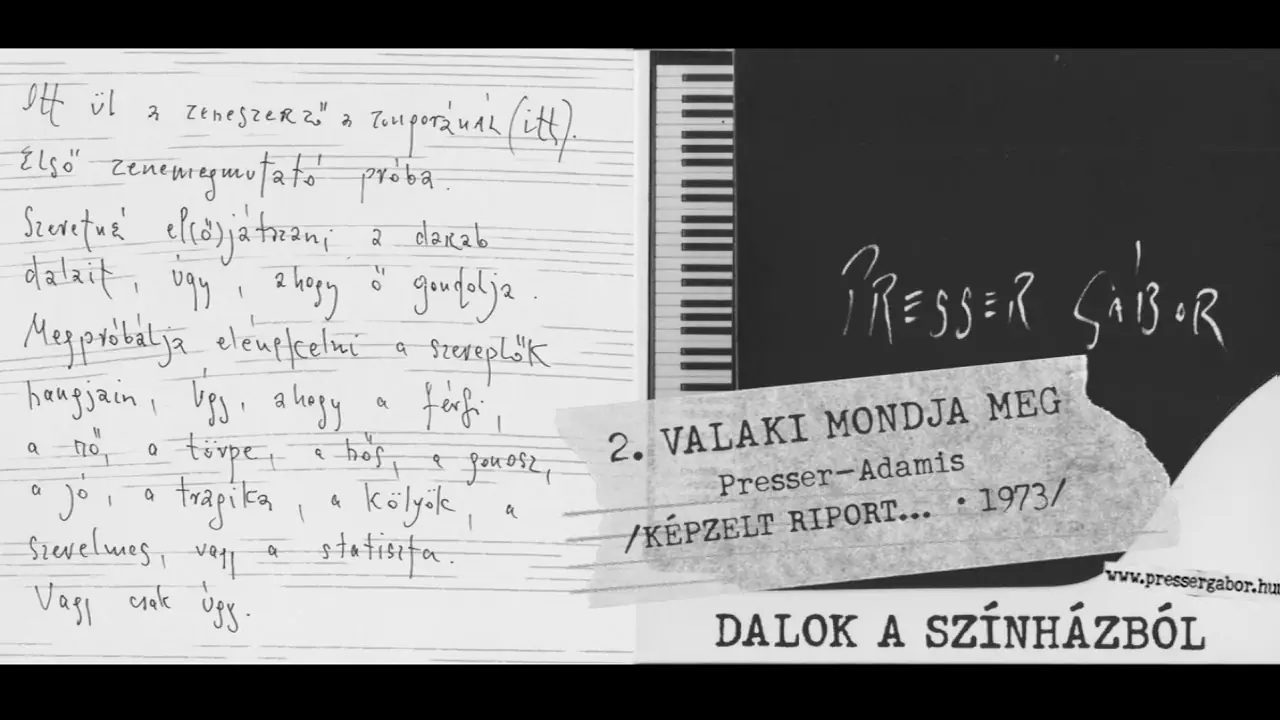 Itt ül a zeneszerző a zongoránál (itt).
Első zenemegmutató próba.
Szeretné el(ő)játszani a darab
dalait, úgy, ahogy ő gondolja.
Megpróbálja elénekelni a szereplők
hangjain, úgy, ahogy a férfi,
a nő, a törpe, a hős, a gonosz,
a jó, a tragika, a kölyök, a
szerelmes, vagy a statiszta.
Vagy csak úgy.
PRESSER GÁBOR
2. VALAKI MONDJA MEG
Presser-Adamis
/KÉPZELT RIPORT... • 1973/
www.pressergabor.hu
DALOK A SZÍNHÁZBÓL